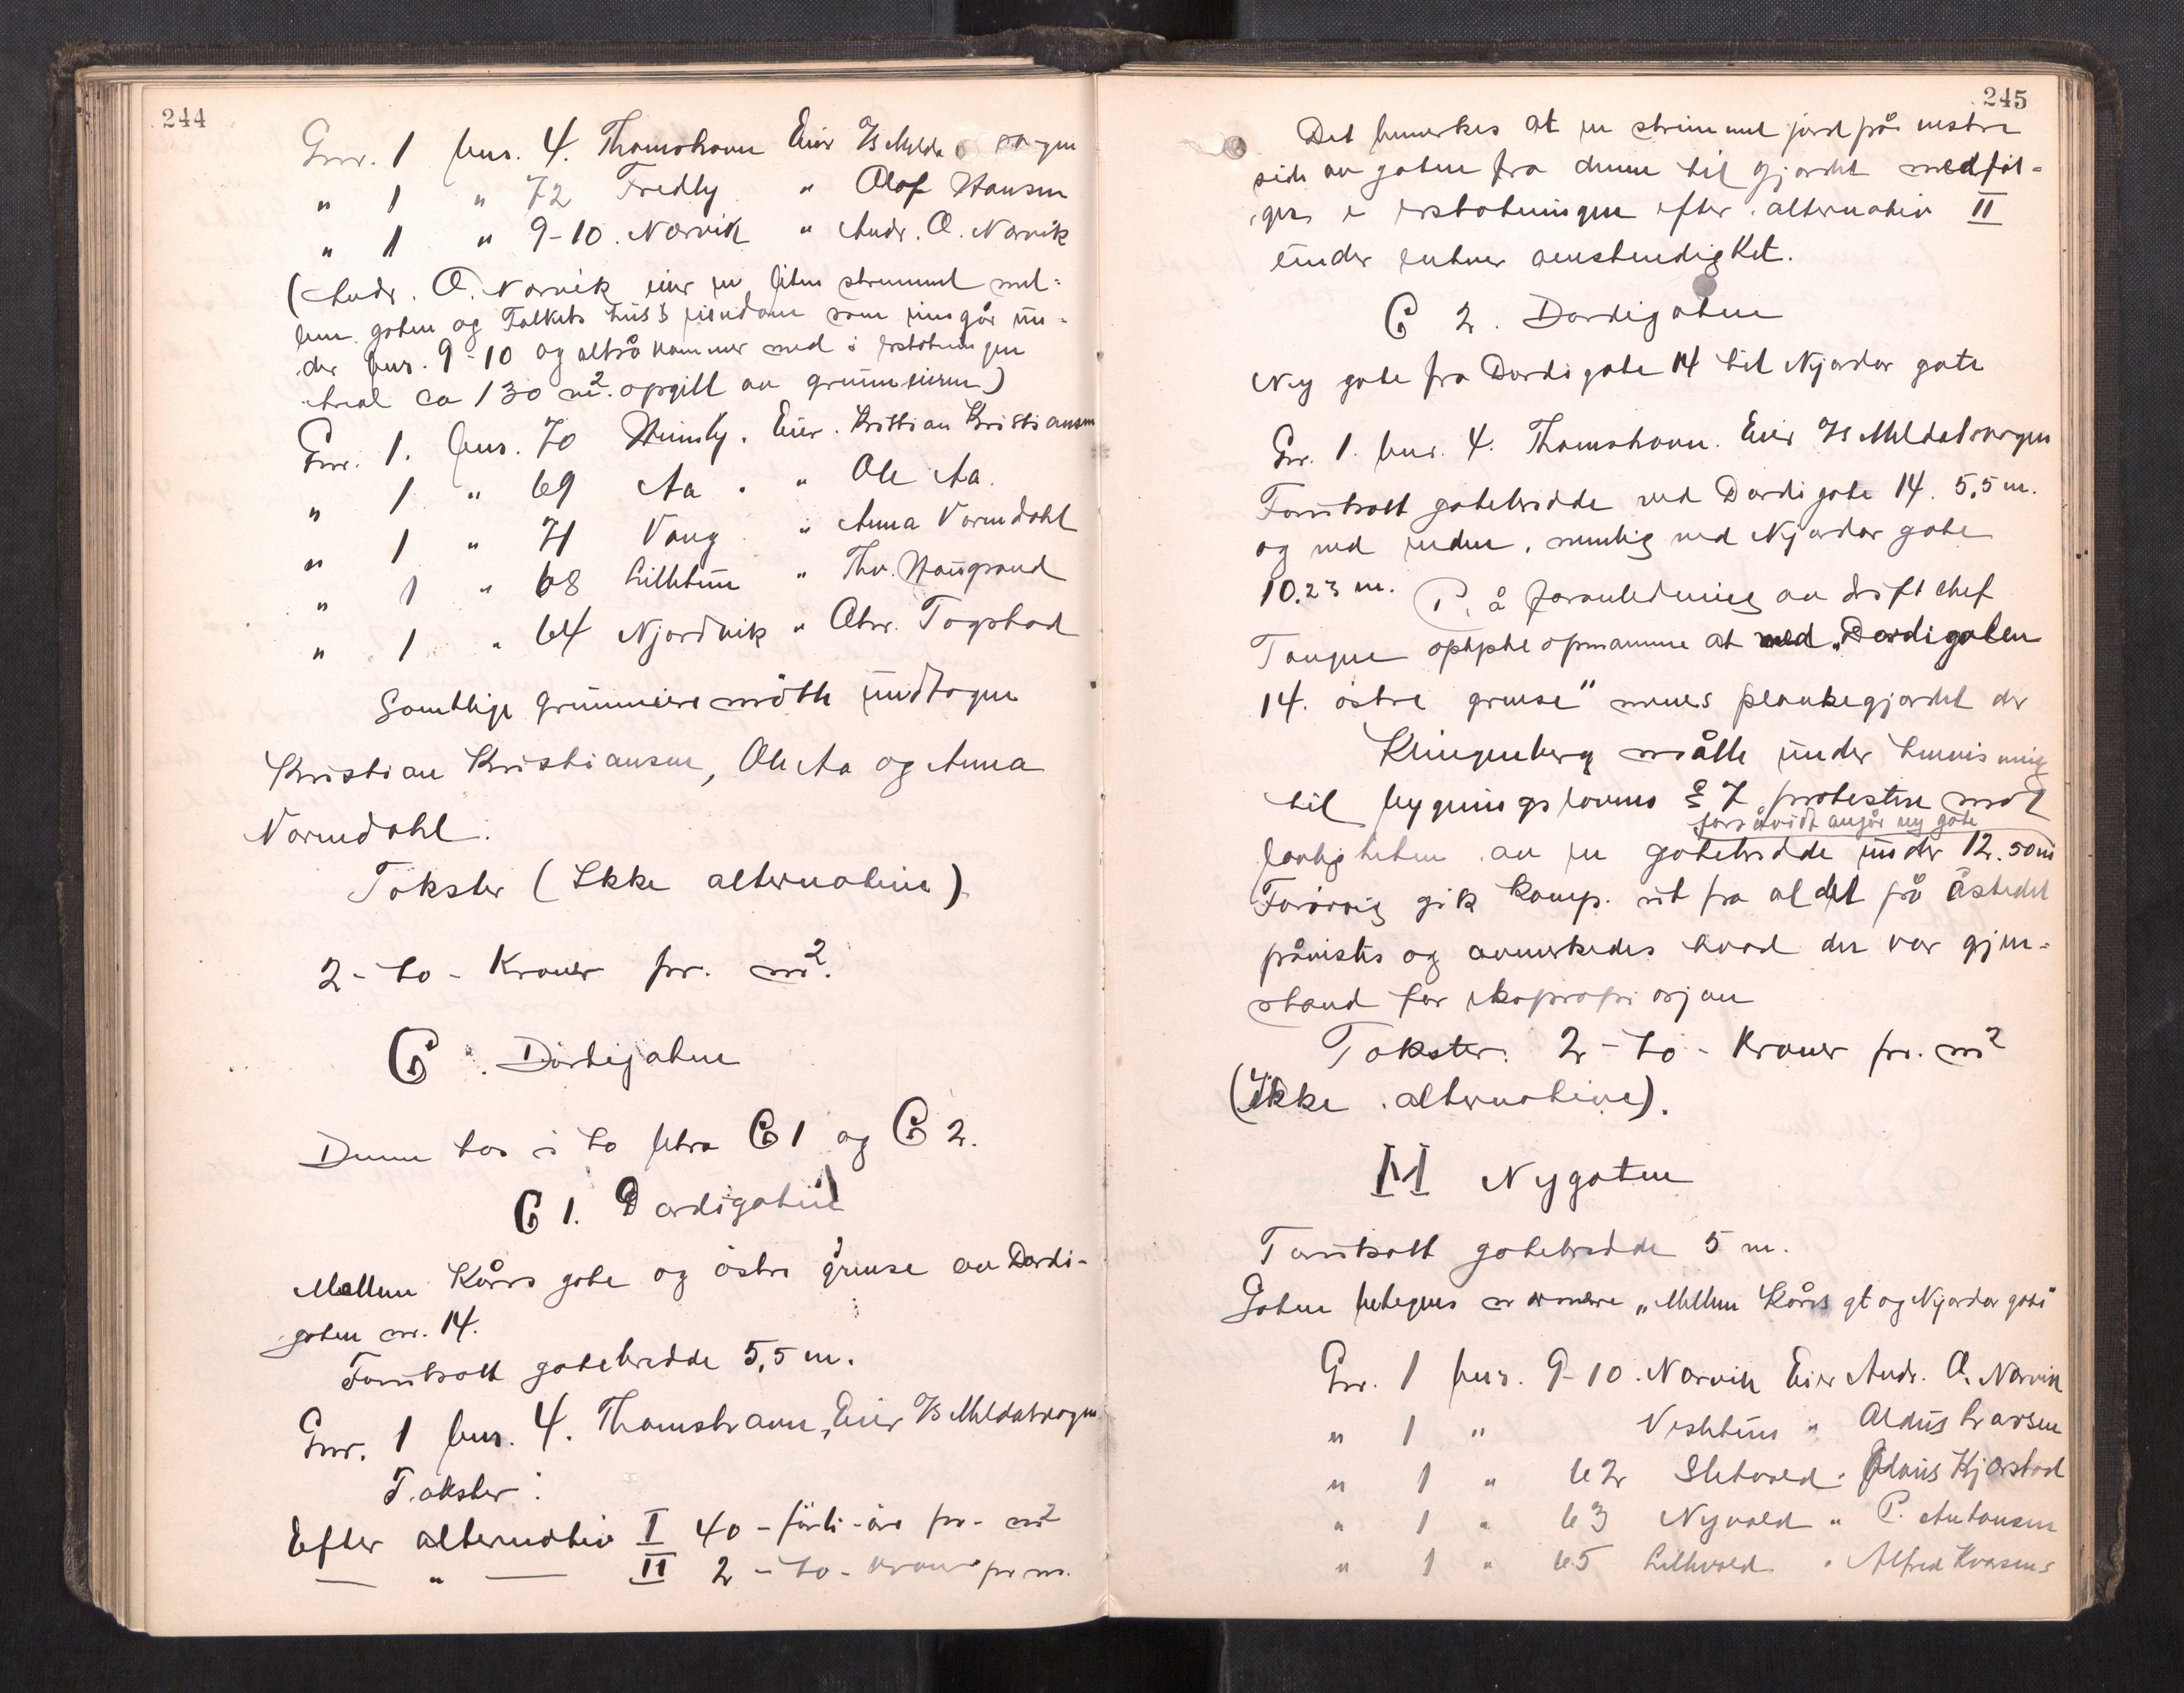 244
Gnr. 1 bnr. 4. Thamshavn Eier A/s Meldalskogen
" 1 " 72 Fredly " Olaf Hansen
" 1 " 9-10. Narvik " Andr. O. Narvik
(Andr. O. Narvik eier en liten strimmel mel-
lem gaten og Folkets hus's eiendom som inngår un-
der bnr. 9-10 og altså kommer med i erstatningen
Areal ca 130 m². opgitt av grunneieren)
Gnr. 1. bnr. 70 Heimly. Eier. Kristian Kristiansen
" 1 " 69 Aa . " Ole Aa.
" 1 " 71 Vang . " Anna Varmdahl
" 1 " 68 Lilletun " Thv. Haugrønd
" 1 " 64 Njardvik " Ahr. Togstad
Samtlige grunneiere møtte undtagen
Kristian Kristiansen, Ole Aa og Anna
Varmdahl.
Takster (Ikke alternative)
2 - to - Kroner pr. m².
G. Dardigaten
Denne tas i to felter G 1 og G 2.
G 1. Dardigaten
Mellem Kårs gate og østre grense av Dardi-
gaten nr. 14.
Forutsatt gatebredde 5,5 m.
Gnr. 1 bnr. 4. Thamshavn, Eier A/s Meldalskogen
Takster:
Efter alternativ I 40 - førti - øre pr. m²
— " — II 2 - to - kroner pr m.
245
Det bemerkes at en strimmel jord på vestre
side av gaten fra denne til gjerdet medføl-
ger i erstatningen efter alternativ II
under enhver omstendighet.
G 2. Dardigaten
Ny gate fra Dardigate 14 til Njardar gate
Gnr. 1. bnr. 4. Thamshavn. Eier A/s Meldalskogen
Forutsatt gatebredde ved Dardigate 14. 5,5 m.
og ved enden, nemlig ved Njardar gate
10.23 m. På foranledning av driftchef
Tangen oplyste opmannen at med "Dardigaten
14. østre grense" menes plankegjerdet der
Klingenberg måtte under henvisning
til bygningslovens § 7 protestere mot
forsåvidt angår ny gate
lovligheten av en gatebredde under 12.50 m
Forøvrig gik komp. ut fra at det på åstedet
påvistes og avmerkedes hvad der var gjen-
stand for ekspropriasjon
Takster: 2 - to - Kroner pr. m²
(Ikke alternative).
H Nygaten
Forutsatt gatebredde 5 m.
Gaten betegnes nærmere "Mellem Kårs gt og Njardar gate"
Gnr. 1 bnr. 9-10. Narvik Eier Andr. O. Narvik
" 1 " Vesletun " Aldus Larsen
" 1 " 62 Sletvold " Kjørstad
" 1 " 63 Nyvold " P. Antonsen
" 1 " 65 Lillevold " Alfred Kvasnes